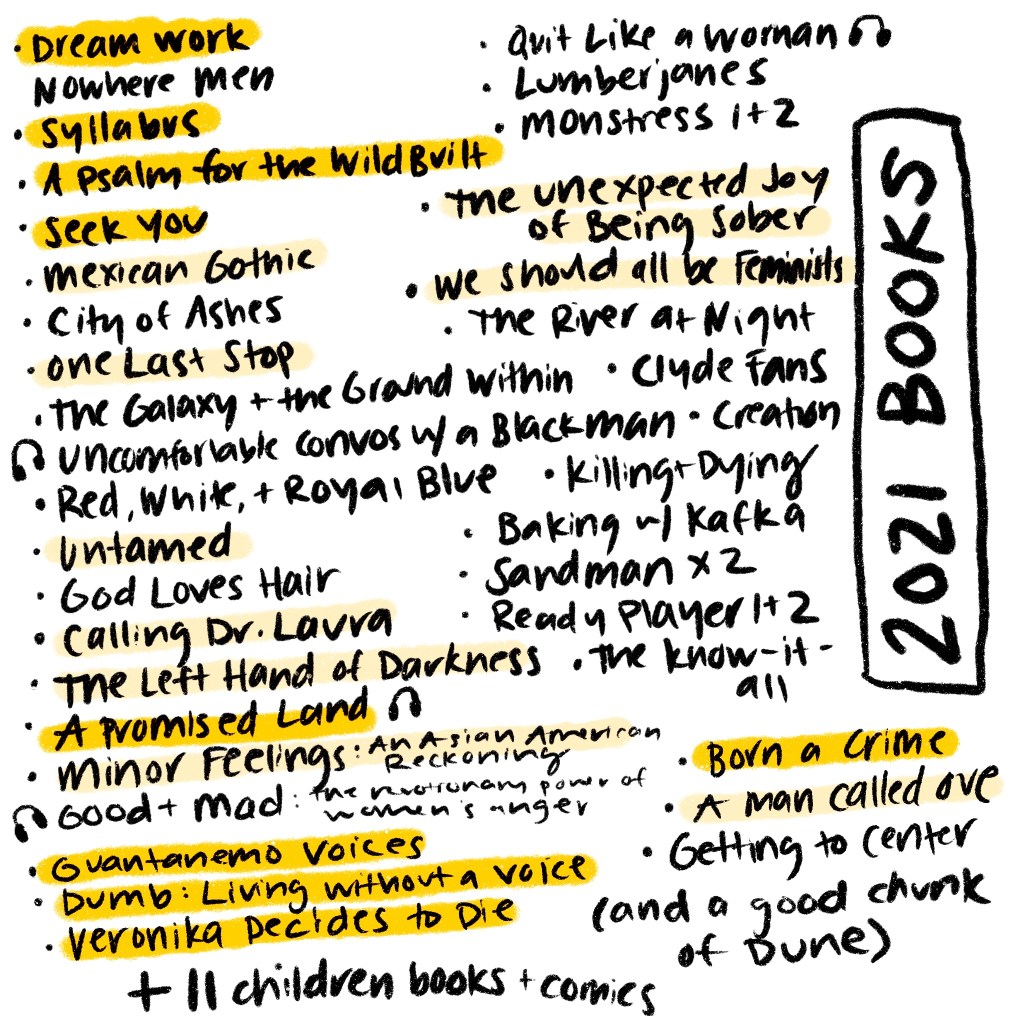 · Dream work
Nowhere men
· Syllabus
· A Psalm for the Wild Built
· Seek You
· Mexican Gothic
· City of Ashes
· One Last Stop
· The Galaxy + the Ground Within
Uncomfortable convos w/ a Black man
· Red, White, + Royal Blue
· Untamed
· God Loves Hair
· Calling Dr. Laura
· The Left Hand of Darkness
· A Promised Land
· Minor Feelings: An Asian American
Reckoning
Good + Mad: the revotionary power of
women's anger
· Guantanemo Voices
· Dumb: Living without a voice
· Veronika Decides to Die
+ 11 children books + comics
· Quit Like a Woman
· Lumberjanes
· Monstress 1+2
· The Unexpected Joy
of Being Sober
· We should all be Feminists
· The River at Night
· Clyde Fans
· Creation
· Killing + Dying
· Baking w/ Kafka
· Sandman x 2
· Ready Player 1+2
· The Know-it-
all
· Born a Crime
· A man called ove
· Getting to Center
(and a good chunk
of Dune)
2021 BOOKS